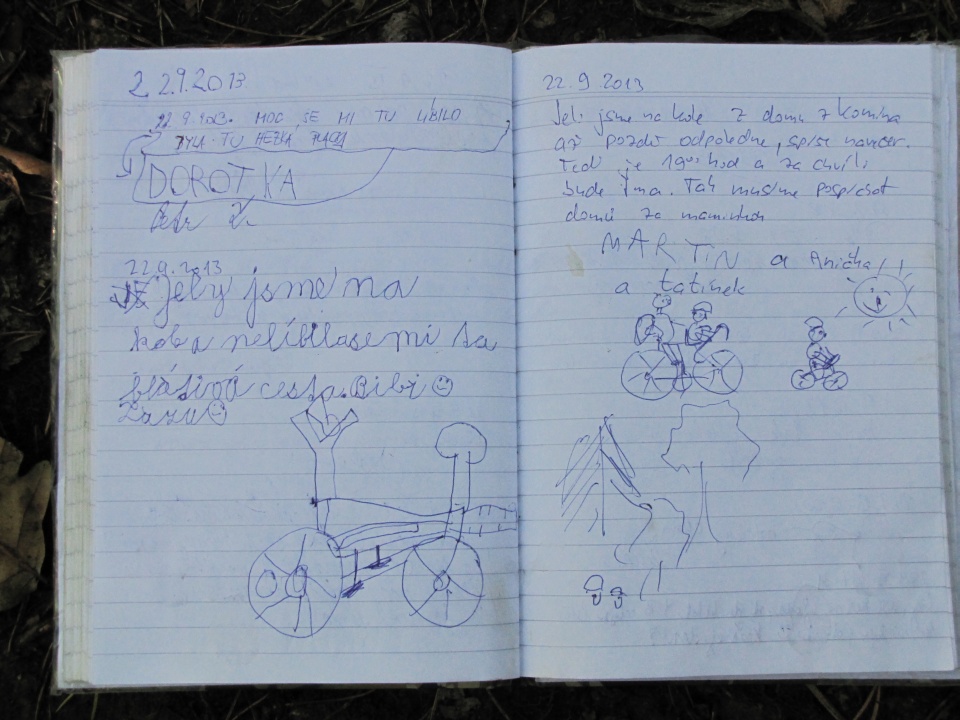 22.9.2013
22.9.2013. MOC SE MI TU LÍBILO
BYLA TU HEZKÁ
DOROTKA
Petr Z.
22.9.2013
jely jsme na
kola nelíbilase mi ta
blátivá cesta. Bibi
Zuzu
22.9 2013
Jeli jsme na kole z domu z Komína
až pozdě odpoledne, spíše navečer.
Teď je 19⁰⁰ hod a za chvíli
bude tma. Tak musíme pospíchat
domů za maminkou
MARTiN a Anička!!
a tatínek